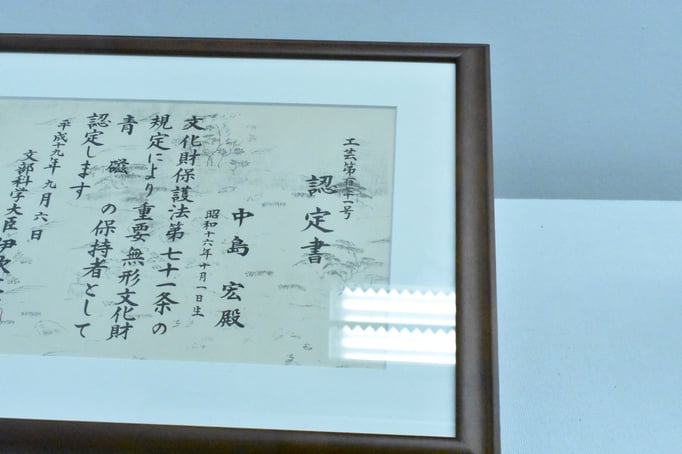 工芸第百十一号
認定書
中島 宏殿
昭和十六年十月一日生
文化財保護法第七十一条の
規定により重要無形文化財
青 磁 の保持者として
認定します
平成十九年九月六日
文部科学大臣 伊吹